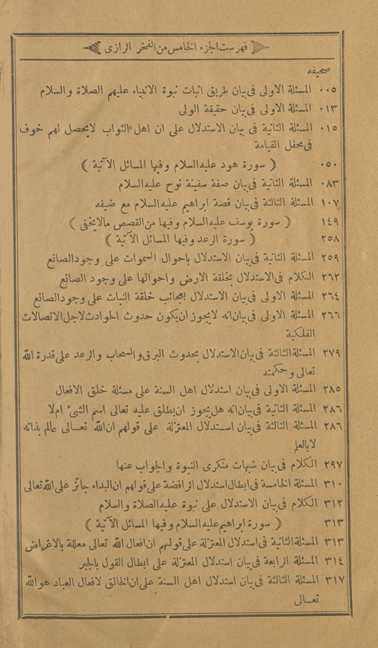 فهرست الجزء الخامس من الفخر الرازى
صحيفه
٠٠٥ المسئلة الاولى فى بيان طريق اثبات نبوة الانبياء عليهم الصلاة والسلام
٠١٣ المسئلة الاولى فى بيان حقيقة الولى
٠١٥ المسئلة الثانية فى بيان الاستدلال على ان اهل الثواب لايحصل لهم خوف
فى محفل القيامة
٠٥٠ ( سورة هود عليه السلام وفيها المسائل الآتية )
٠٨٣ المسئلة الثانية فى بيان صفة سفينة نوح عليه السلام
١٠٧ المسئلة الثالثة فى بيان قصة ابراهيم عليه السلام مع ضيفه
١٤٩ ( سورة يوسف عليه السلام وفيها من القصص مالايخفى )
٢٥٨ ( سورة الرعد وفيها المسائل الآتية )
٢٥٩ المسئلة الثانية فى بيان الاستدلال باحوال السموات على وجود الصانع
٢٦٢ الكلام فى الاستدلال بخلقة الارض واحوالها على وجود الصانع
٢٦٤ المسئلة الاولى فى بيان الاستدلال بعجائب خلقة النبات على وجود الصانع
٢٦٦ المسئلة الاولى فى بيان انه لايجوز ان يكون حدوث الحوادث لاجل الاتصالات
الفلكية
٢٧٩ المسئلة الثالثة فى بيان الاستدلال بحدوث البرق والسحاب والرعد على قدرة الله
تعالى وحكمته
٢٨٥ المسئلة الاولى فى بيان استدلال اهل السنة على مسئلة خلق الافعال
٢٨٦ المسئلة الثانية فى بيان انه هل يجوز ان يطلق عليه تعالى اسم الشئ ام لا
٢٨٦ المسئلة الثالثة فى بيان استدلال المعتزلة على قولهم ان الله تعالى عالم بذاته
لا بالعلم
٢٩٧ الكلام فى بيان شبهات منكرى النبوة والجواب عنها
٣١٠ المسئلة الخامسة فى ابطال استدلال الرافضة على قولهم ان البداء جائز على الله تعالى
٣١٢ الكلام فى بيان الاستدلال على نبوة عليه الصلاة والسلام
٣١٣ ( سورة ابراهيم عليه السلام وفيها المسائل الآتية )
٣١٣ المسئلة الثانية فى استدلال المعتزلة على قولهم ان افعال الله تعالى معللة بالاغراض
٣١٤ المسئلة الرابعة فى بيان استدلال المعتزلة على ابطال القول بالجبر
٣١٧ المسئلة الثالثة فى بيان استدلال اهل السنة على ان الخالق لافعال العباد هو الله
تعالى